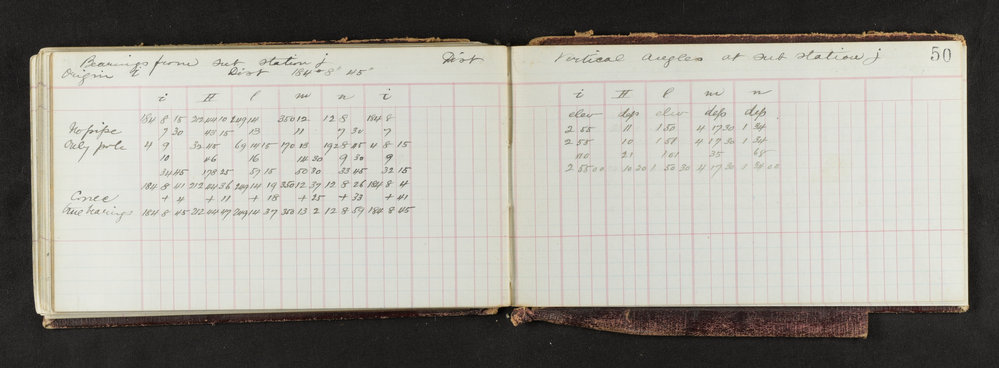 Bearings from Sub Station j Dist
Origin i Dist 184° 8' 45"
i H l m n i
184 8 15 212 44 10 249 14 350 12 12 8 184 8
No pipe 7 30 43 15 13 11 7 30 7
Only pole 4 9 32 45 69 14 15 170 13 192 8 45 4 8 15
10 46 16 14 30 9 30 9
34 45 178 25 57 15 50 30 33 45 32 15
184 8 41 212 44 36 249 14 19 350 12 37 12 8 26 184 8 4
Correc + 4 + 11 + 18 + 25 + 33 + 41
True bearings 184 8 45 212 44 47 249 14 37 350 13 2 12 8 59 184 8 45
Vertical Angles at Sub Station j 50
i H l m n
elev dep elev dep dep
2 55 11 1 50 4 17 30 1 34
2 55 10 1 51 4 17 30 1 34
110 21 101 35 68
2 55 00 10 20 1 50 30 4 17 30 1 34 00